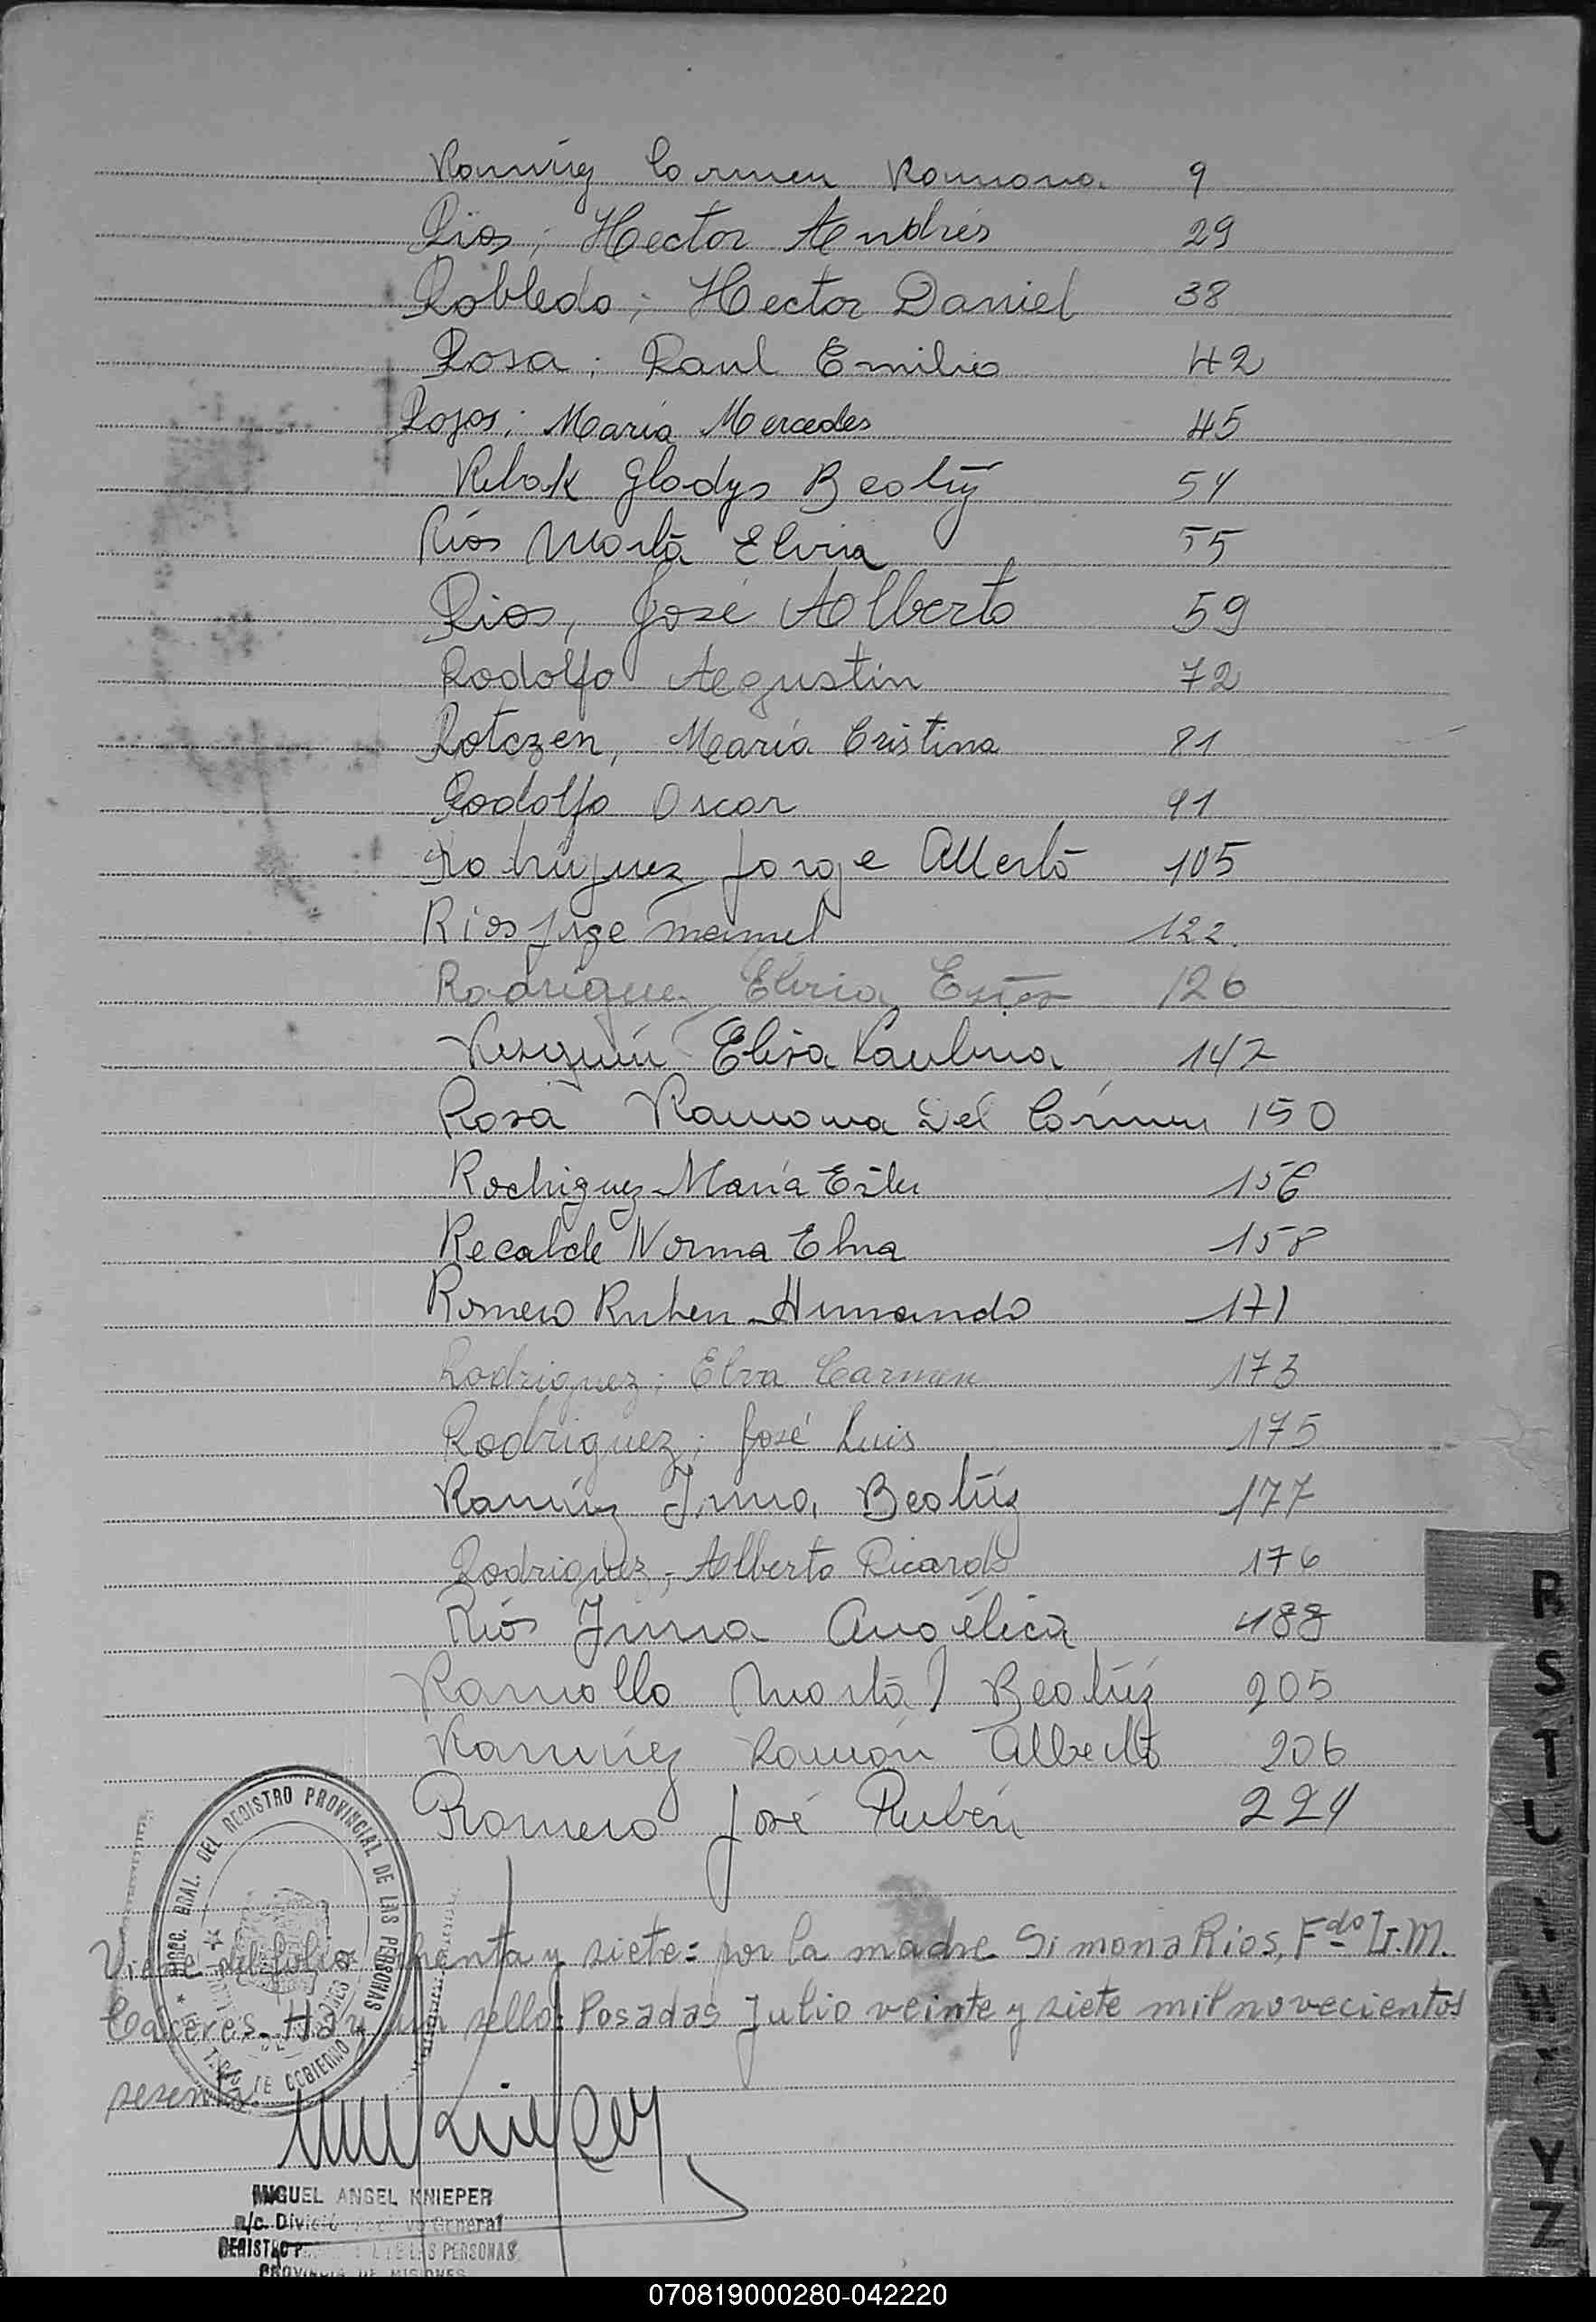 Ramírez Carmen Ramona 9
Rios; Hector Andrés 29
Robledo; Hector Daniel 38
Rosa; Raul Emilio 42
Rojas; María Mercedes 45
Gladys Beatríz 54
Ríos Marta Elvira 55
Rios, José Alberto 59
Rodolfo Agustin 72
Rotczen, María Cristina 81
Rodolfo Oscar 91
Rodriguez Jorge Alberto 105
Rios Jorge Manuel 122.
Rodriguez 126
Elisa Paulina 147
Rosa Ramona Del Cármen 150
Rodriguez María Ester 156
Recalde Norma Elma 158
Romero Ruben Hernando 171
Rodriguez; Elva Carmen 173
Rodriguez; José Luis 175
Ramírez Irma Beatríz 177
Rodriguez; Alberto Ricardo 176
Ríos Irma Angélica 188
Ramallo Marta Beatríz 205
Ramírez Ramón Alberto 206
Romero José Rubén 224
Viene del folio y siete: por la madre Simona Rios, Fdo G.M.
Caceres. Hay un sello: Posadas Julio veinte y siete mil novecientos
sesenta.
DIREC. GRAL. DEL REGISTRO PROVINCIAL DE LAS PERSONAS
DE GOBIERNO
MIGUEL ANGEL KNIEPER
a/c. División General
REGISTRO P DE LAS PERSONAS
PROVINCIA DE MISIONES
R
S
T
Y
Z
070819000280-042220